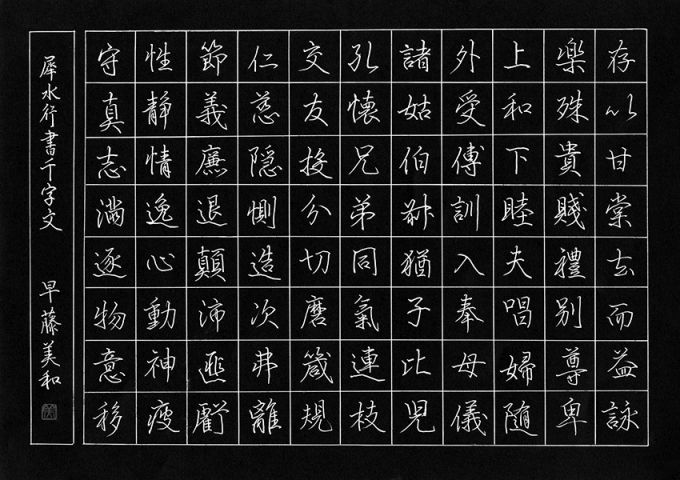 存以甘棠去而益詠
楽殊貴賤禮別尊卑
上和下睦夫唱婦随
外受傅訓入奉母儀
諸姑伯叔猶子比児
孔懐兄弟同氣連枝
交友投分切磨箴規
仁慈隠惻造次弗離
節義廉退顛沛匪虧
性静情逸心動神疲
守真志満逐物意移
犀水行書千字文 早藤美和